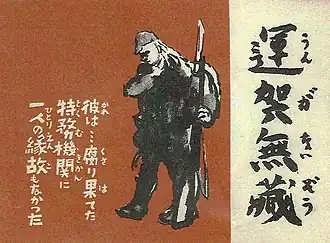 運賀無藏
うんがないぞう
彼は…腐り果てた
かれ くさ は
特務機関に
とくむきかん
一人の縁故もなかった
ひとり えんこ